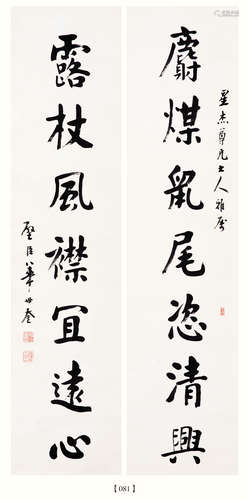 麝煤鼠尾恣清興
星杰尊兄大人雅屬
露杖風襟冝遠心
璧臣華世奎
【081】